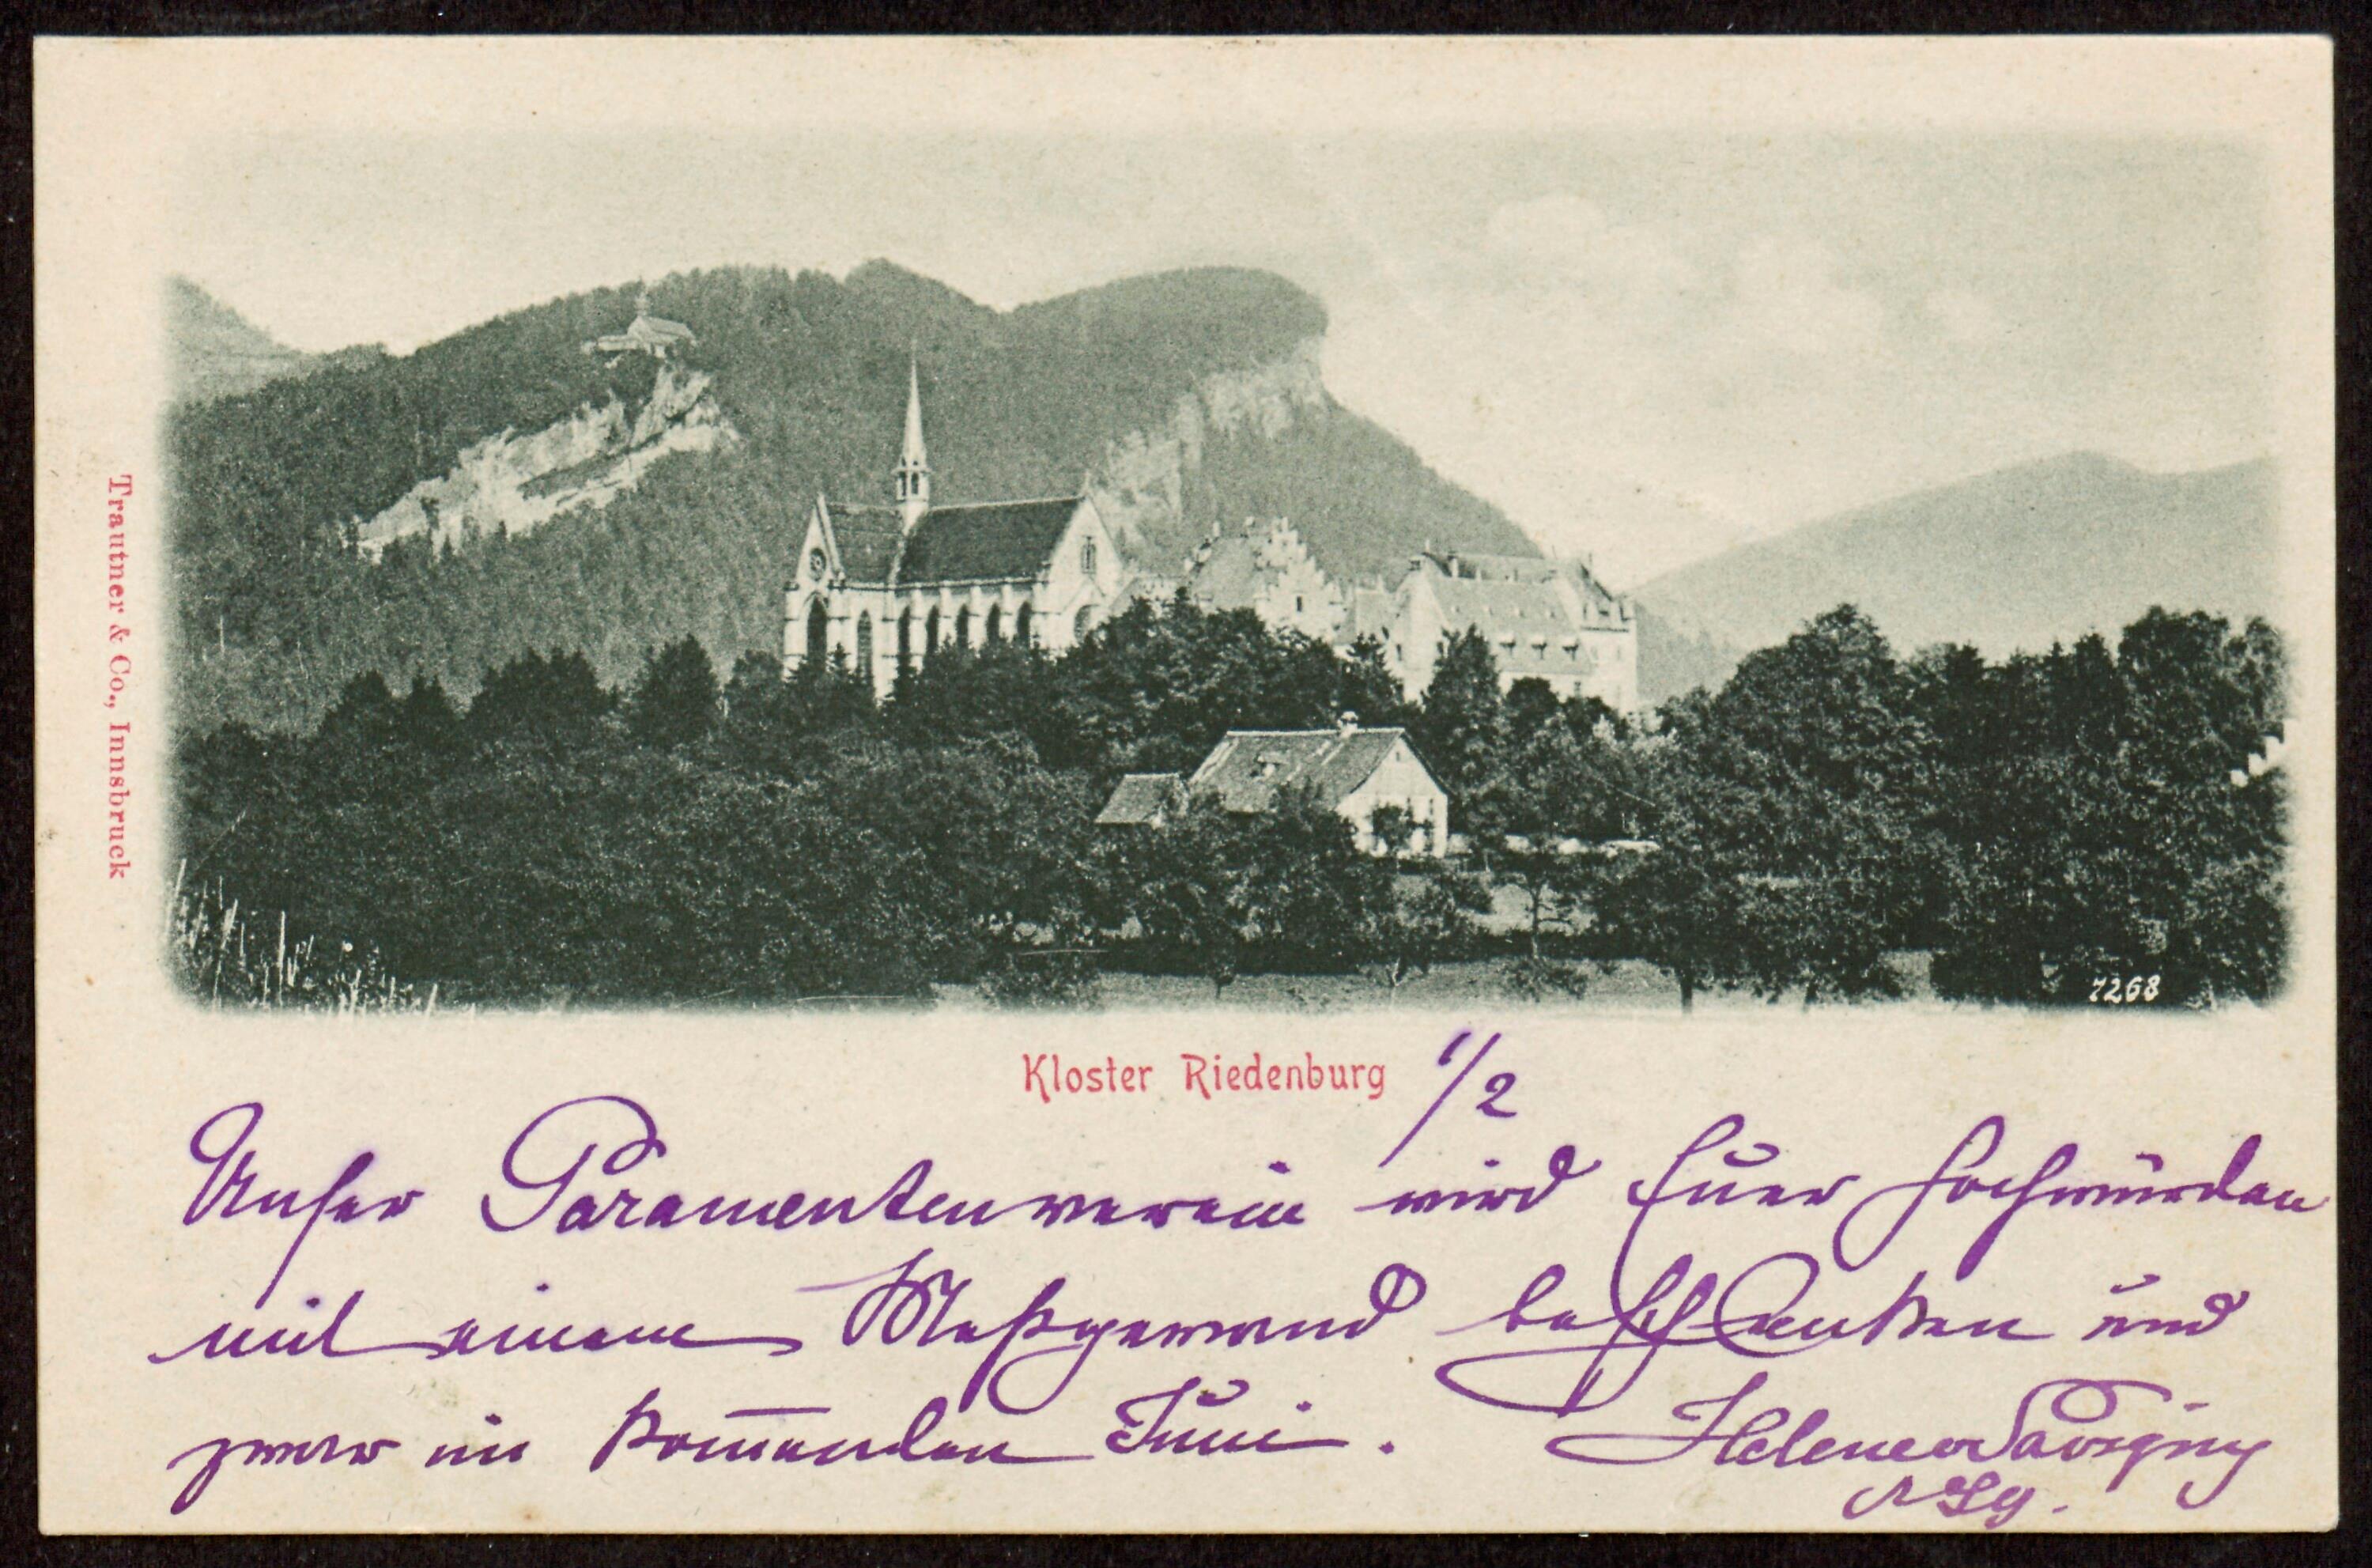 Trautner & Co., Innsbruck
7268
Kloster Riedenburg
1/2
Unser Paramentenverein wird Euer Hochwürden
mit einem Meßgewand beschenken und
zwar im kom̅enden Juni.
Helene v Savigny